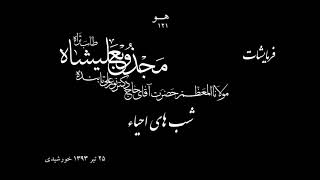 هو
۱۲۱
فرمایشات
مجذوبعلیشاه طاب ثراه
مولانا المعظم حضرت آقای حاج دکتر نورعلی تابنده
شب های احیاء
۲۵ تیر ۱۳۹۳ خورشیدی